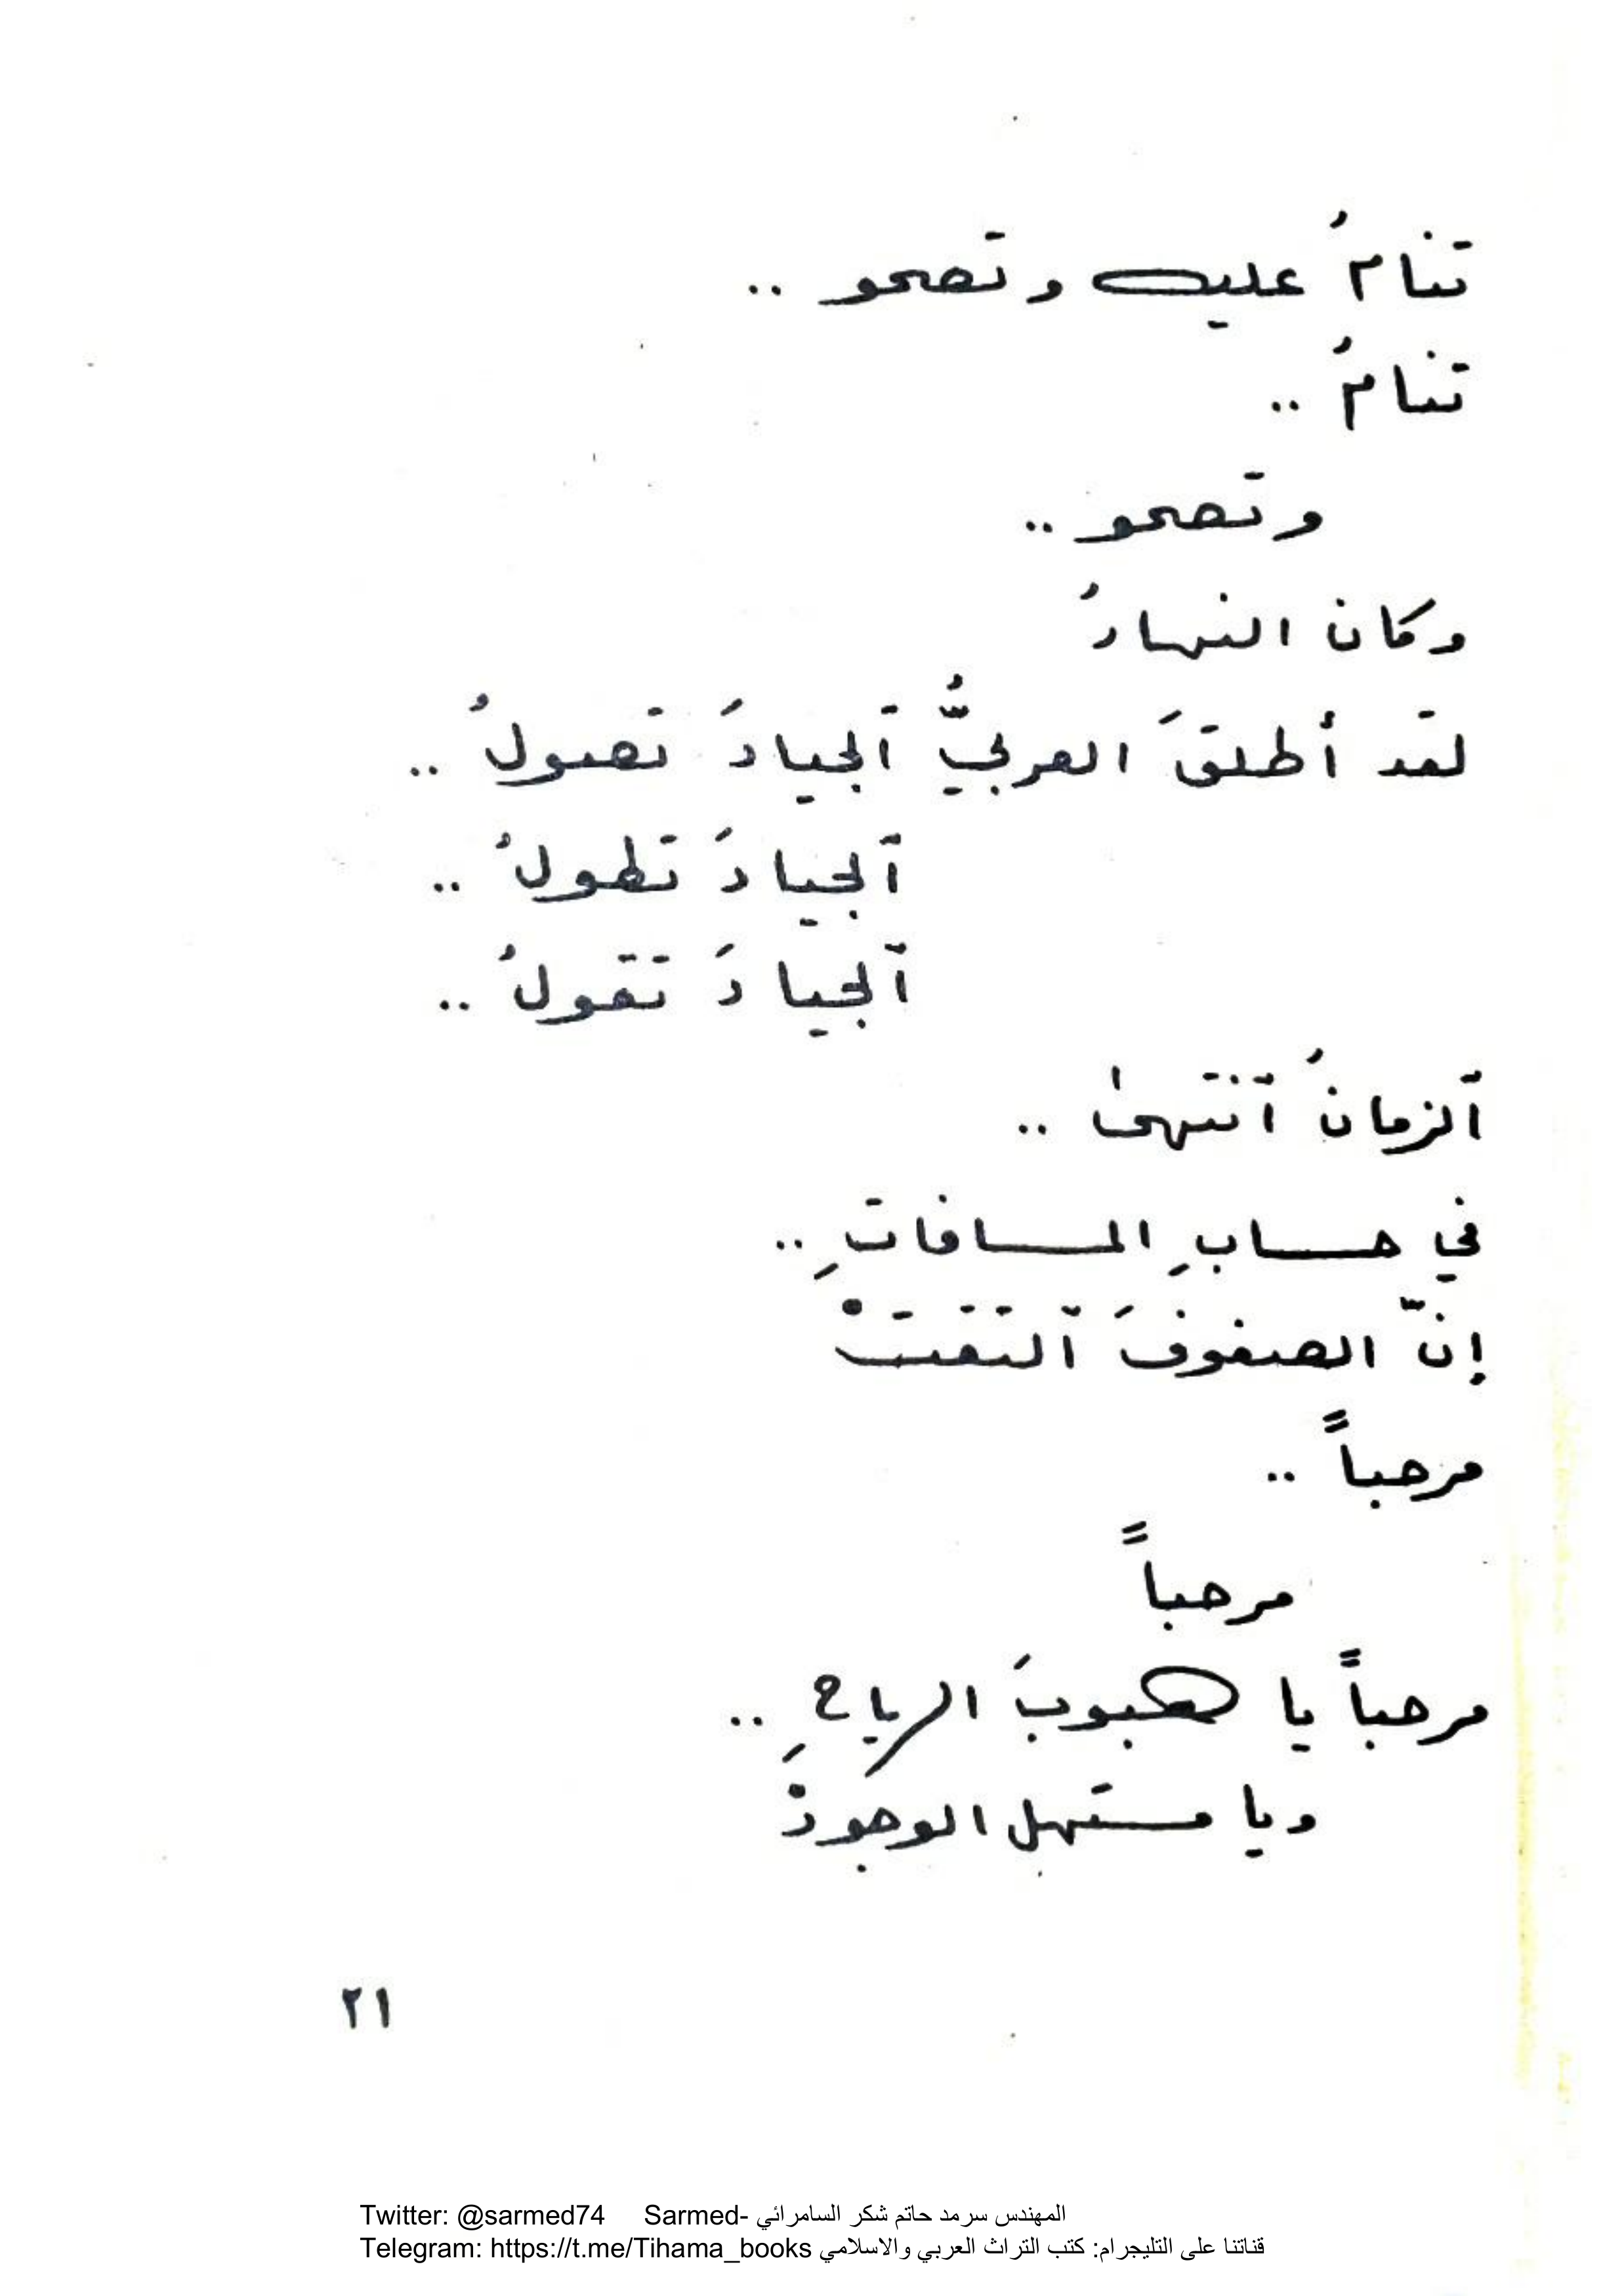 تنامُ عليك وتصحو ..
تنامُ ..
وتصحو ..
وكان النهارُ
لقد أطلقَ العربيُّ ٱلجيادَ تصولُ ..
ٱلجيادَ تطولُ ..
ٱلجيادَ تقولُ ..
ٱلزمانُ ٱنتهىٰ ..
في حسابِ المسافاتِ ..
إنّ الصفوفَ ٱلتقتْ
مرحباً ..
مرحباً
مرحباً يا هبوبَ الرياحِ ..
ويا مستهل الوجودْ
٢١
Twitter: @sarmed74 Sarmed- المهندس سرمد حاتم شكر السامرائي
Telegram: https://t.me/Tihama_books قناتنا على التليجرام: كتب التراث العربي والاسلامي